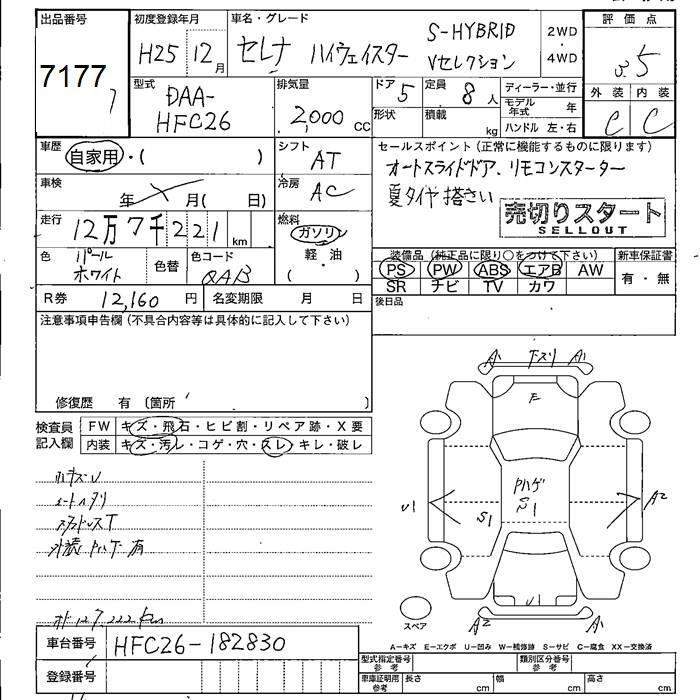 出品番号 初度登録年月 車名・グレード 評価点
7177
7
H25 12月 セレナ ハイウェイスター S-HYBRID Vセレクション 2WD・4WD 3.5
型式 排気量 ドア 定員 ディーラー・並行 外装 内装
DAA-HFC26 2,000 cc 5 8人 モデル年式 年 C C
形状 積載 kg ハンドル 左・右
車歴 自家用・( ) シフト AT
セールスポイント (正常に機能するものに限ります)
オートスライドドア、リモコンスターター
夏タイヤ搭さい
車検 年 月( 日) 冷房 AC
売切りスタート
SELLOUT
走行 12万7千221 km 燃料 ガソリン 軽・油 ( )
色 パールホワイト 色替 色コード QAB
装備品 (純正品に限り○をつけて下さい) 新車保証書
PS PW ABS エアB AW 有・無
SR ナビ TV カワ
R券 12,160円 名変期限 月 日
後日品
注意事項申告欄 (不具合内容等は具体的に記入して下さい)
修復歴 有 〔箇所 〕
検査員記入欄 FW キズ・飛石・ヒビ割・リペア跡・X要
内装 キズ・汚レ・コゲ・穴・スレ・キレ・破レ
A1 下スリ A1
F
Pハゲ
S1
U1 S1 A2
U1
A2 A1
スペア
外装Pハゲ有
車台番号 HFC26-182830
登録番号
A-キズ E-エクボ U-凹み W-補修跡 S-サビ C-腐食 XX-交換済
型式指定番号 参考 類別区分番号 参考
車庫証明用 参考 長さ cm 幅 cm 高さ cm